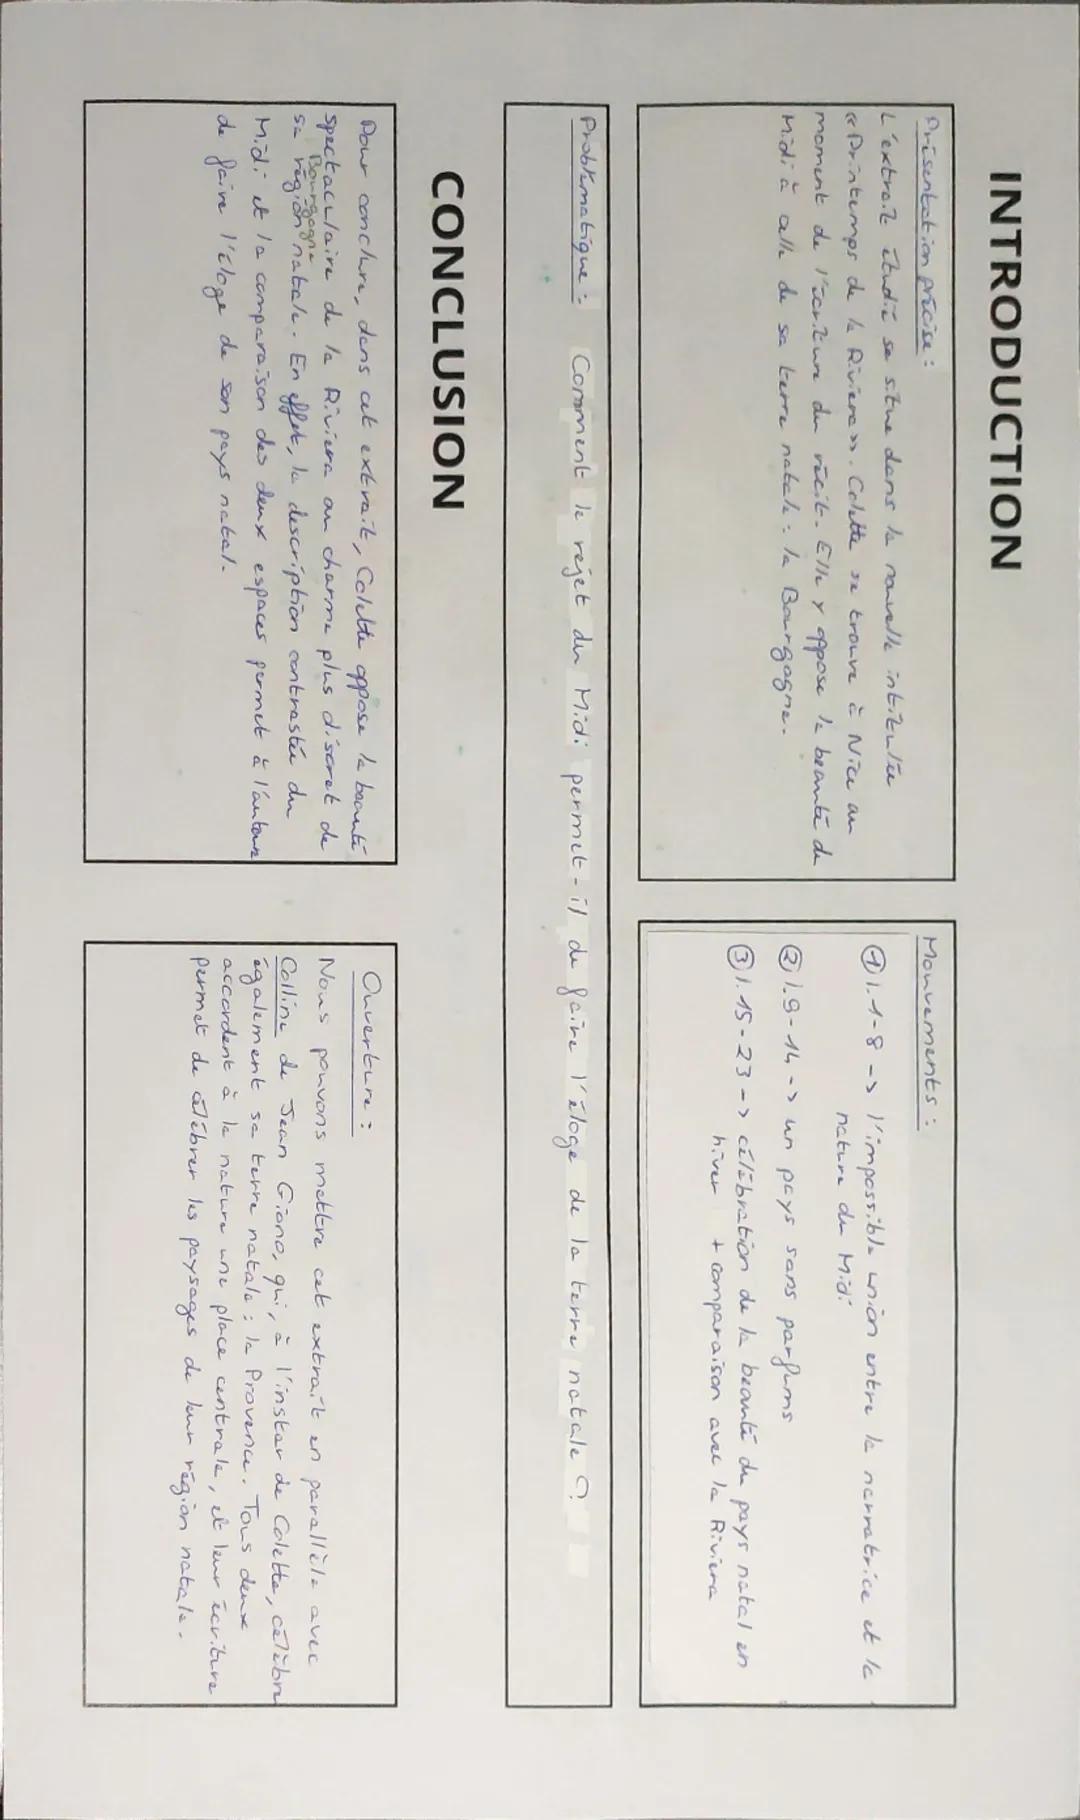 INTRODUCTION
Présentation précise :
L'extrait étudié se situe dans la nouvelle intitulée
« Printemps de la Riviera ». Colette se trouve à Nice au
moment de l'écriture du récit. Elle y oppose la beauté du
Midi à celle de sa terre natale : la Bourgogne.
Mouvements :
① l.1-8 -> l'impossible union entre la narratrice et la
nature du Midi
② l.9-14 -> un pays sans parfums
③ l.15-23 -> célébration de la beauté du pays natal en
hiver + comparaison avec la Riviera
Problématique : Comment le rejet du Midi permet-il de faire l'éloge de la terre natale ?
CONCLUSION
Pour conclure, dans cet extrait, Colette oppose la beauté
spectaculaire de la Riviera au charme plus discret de
Bourgogne
sa région natale. En effet, la description contrastée du
Midi et la comparaison des deux espaces permet à l'auteur
de faire l'éloge de son pays natal.
Ouverture :
Nous pouvons mettre cet extrait en parallèle avec
Colline de Jean Giono, qui, à l'instar de Colette, célèbre
également sa terre natale : la Provence. Tous deux
accordent à la nature une place centrale, et leur écriture
permet de célébrer les paysages de leur région natale.